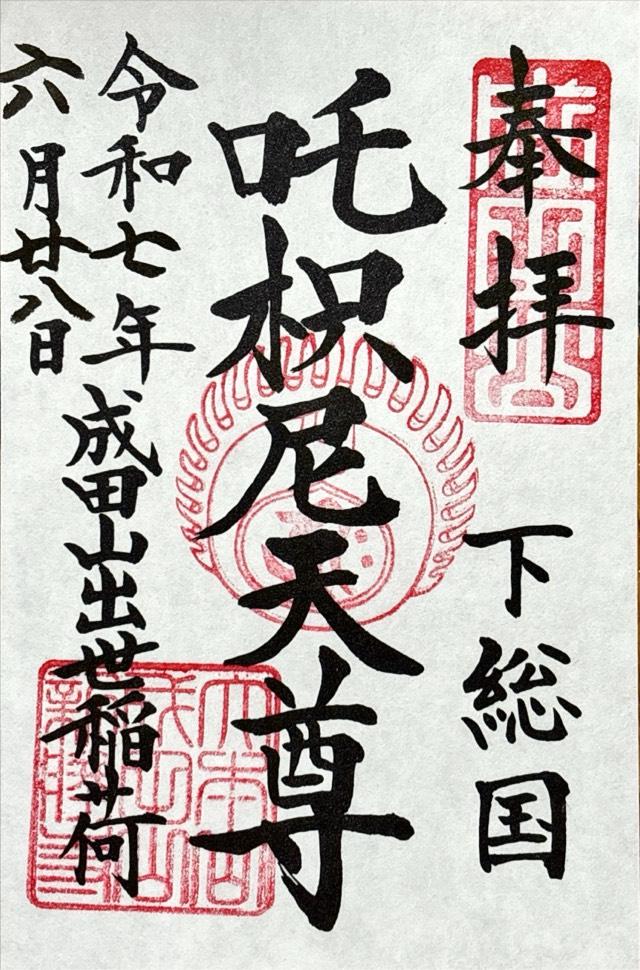 奉拝
下総国
吒枳尼天尊
令和七年
六月廿八日
成田山出世稲荷